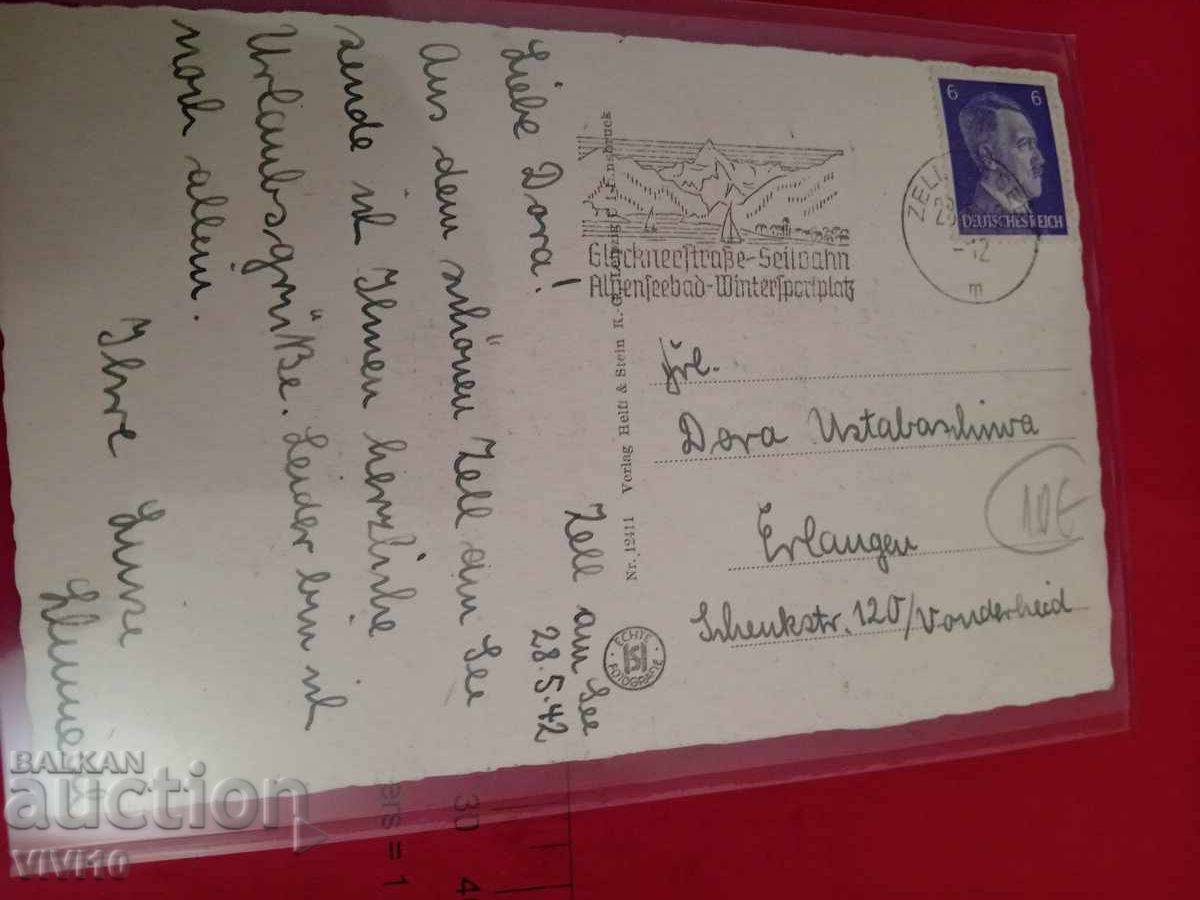 Zell am See
28.5.42
Liebe Dora!
Aus dem schönen Zell am See
sende ich Ihnen herzliche
Urlaubsgrüße. Leider bin ich
noch allein.
Ihre Luise
Nr. 12411 Verlag Helff & Stein K.-G. Leipzig Innsbruck
ECHTE FOTOGRAFIE
Glocknerstraße-Seilbahn
Alpenseebad-Wintersportplatz
ZELL
-12
m
6 6
DEUTSCHES REICH
Frl.
Dora Ustabaschiwa
Erlangen
Schenkstr. 120/Vonderheid
10€
BALKAN
auction
VIVI10
ers = 1
30 4